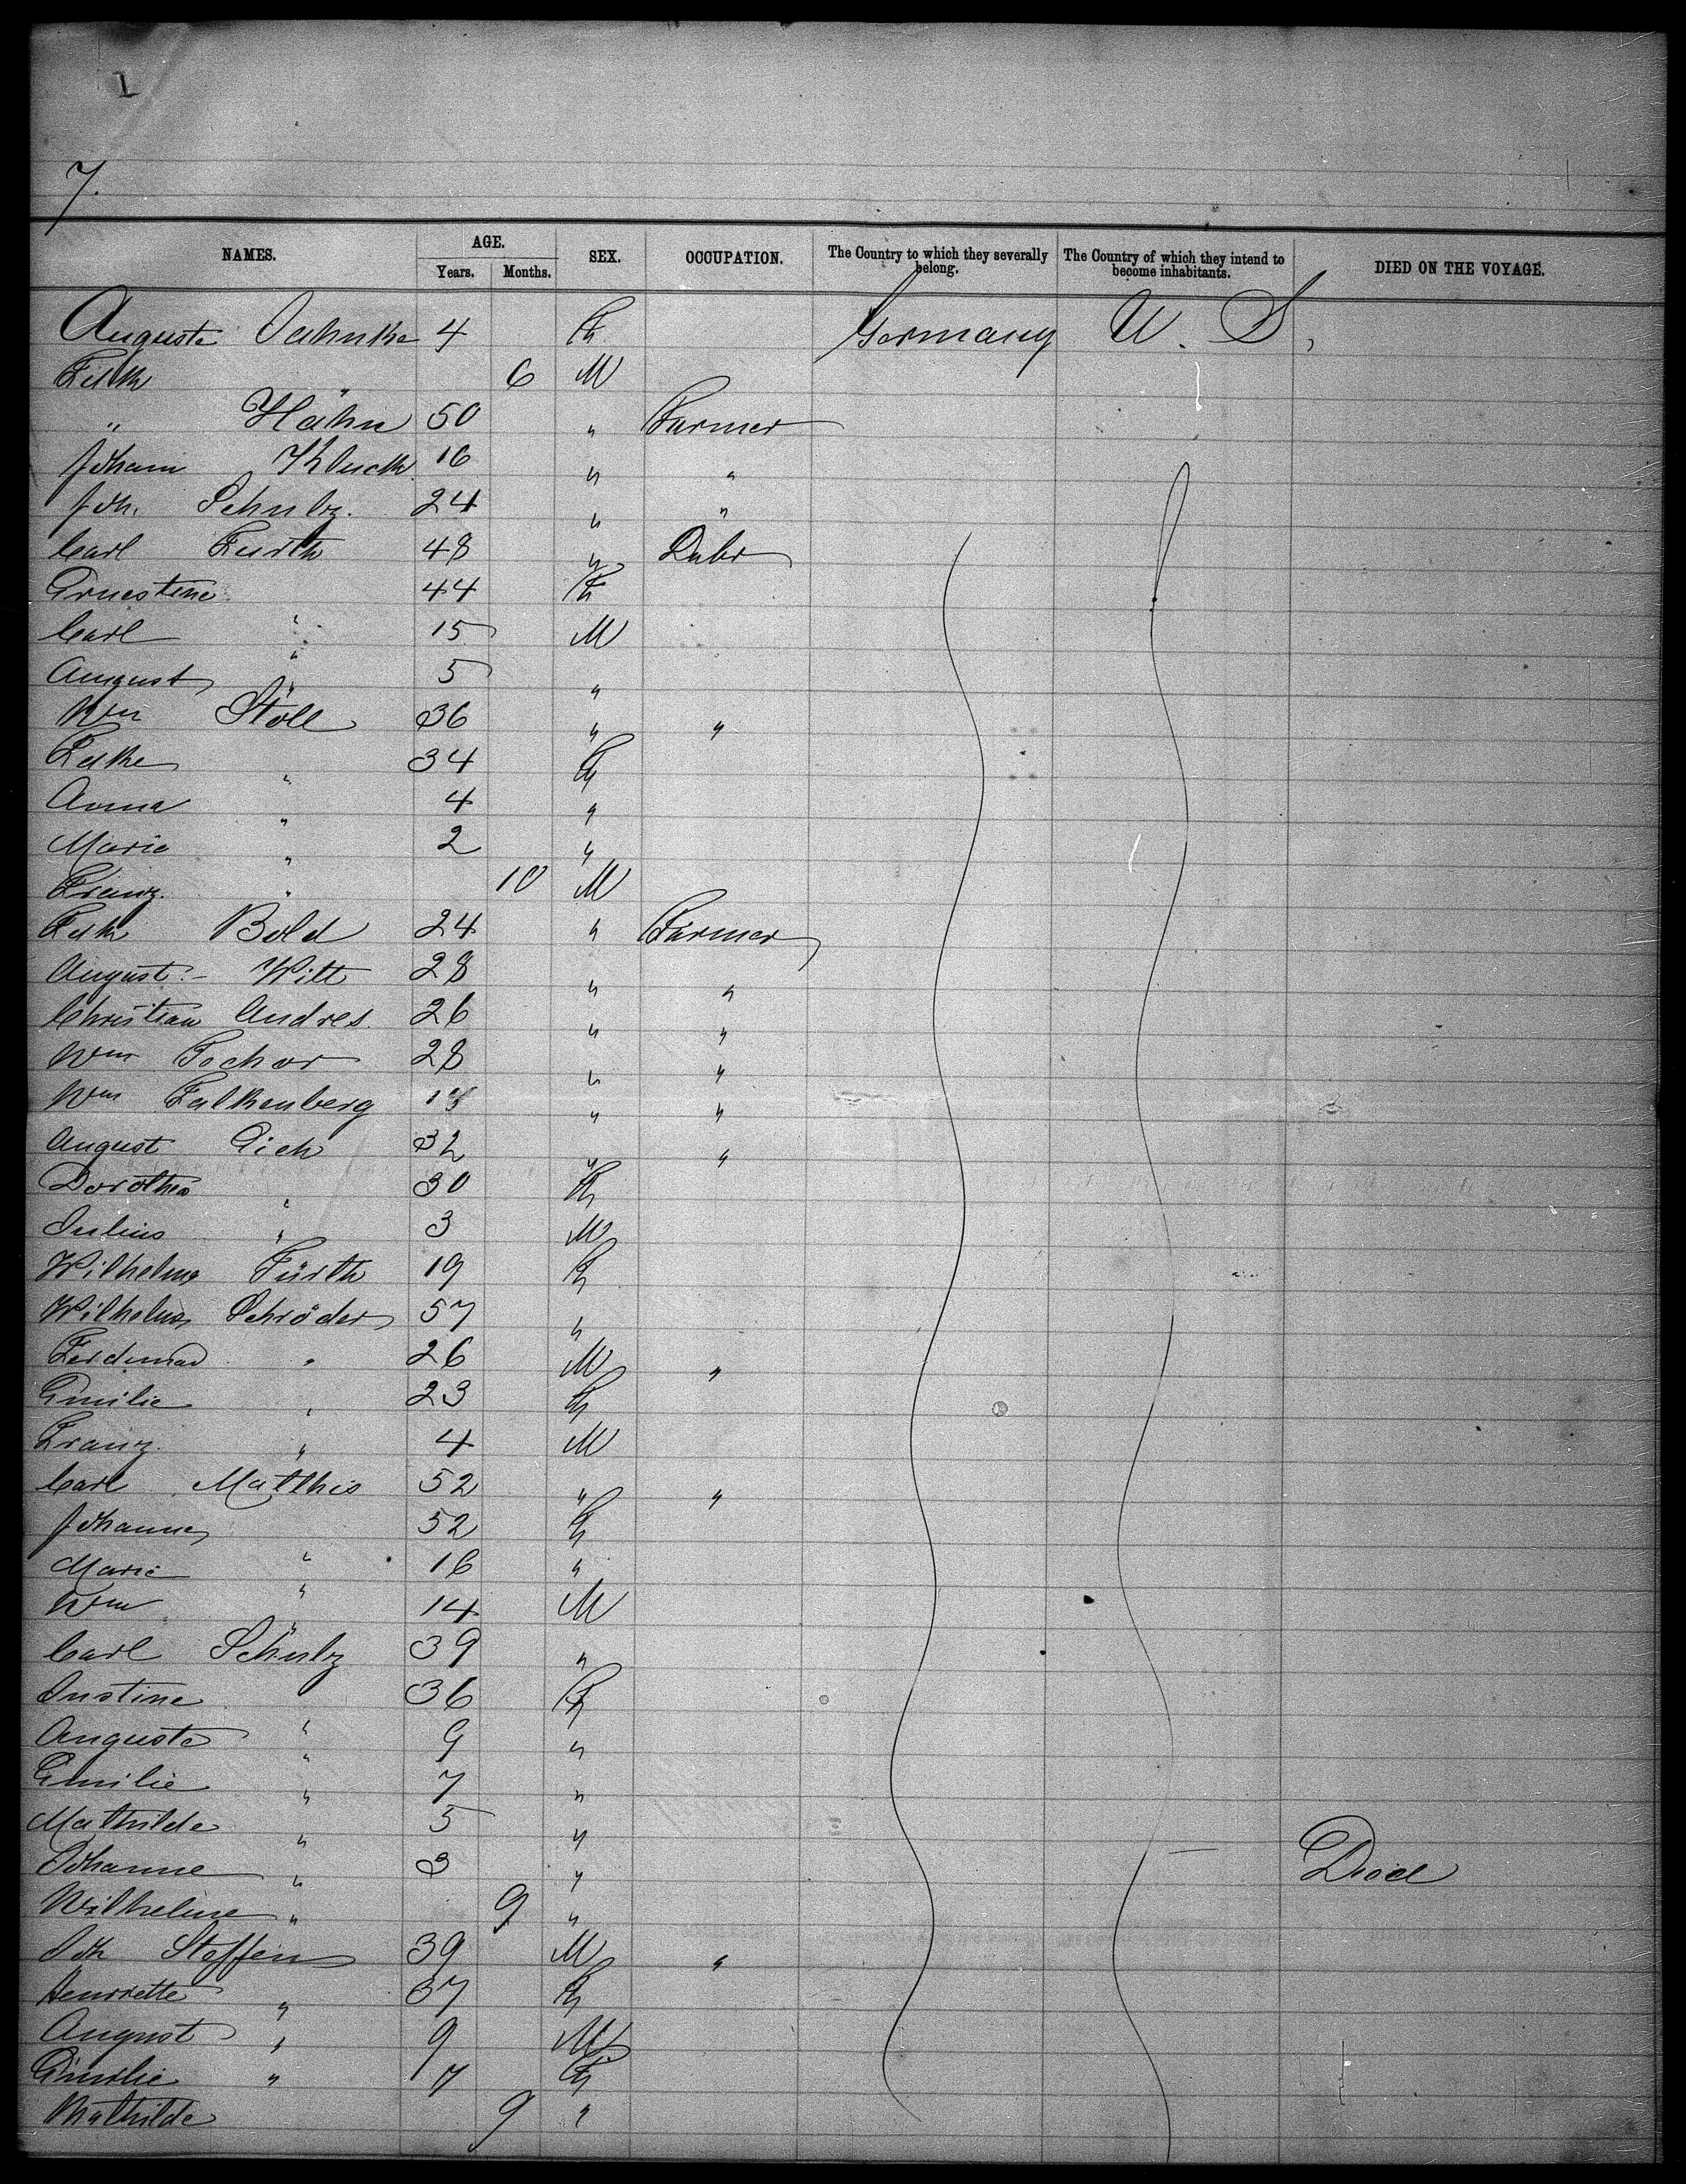 7.
NAMES. AGE. Years. Months. SEX. OCCUPATION. The Country to which they severally belong. The Country of which they intend to become inhabitants. DIED ON THE VOYAGE.
Auguste Jahnke 4 F Germany U. S.
6 M
" Hahn 50 " Farmer
Johann Kluck 16 " "
Joh. Schulz. 24 " "
Carl Furth 48 " Labr
Ernestine " 44 F
Carl " 15 M
August " 5 "
Wm Stoll 36 " "
" 34 F
Anna " 4 "
Marie " 2 "
Franz. " 10 M
Bold 24 " Farmer
August Witt 28 " "
Christian Andres 26 " "
Wm 28 " "
Wm Falkenberg " "
August Eich 32 " "
Dorothea " 30 F
Julius " 3 M
Wilhelma Fürth 19 F
Wilhelma Schröder 57 "
Ferdinand " 26 M "
Emilie " 23 F
Franz. " 4 M
Carl Matthis 52 " "
Johanne " 52 F
Marie " 16 "
Wm " 14 M
Carl Schulz 39 "
Justine " 36 F
Auguste " 9 "
Emilie " 7 "
Mathilde " 5 "
Johanne " 3 " Died
Wilhelmine " 9 "
Joh Steffen 39 M "
Henriette " 37 F
August " 9 M
Emilie " 7 F
Mathilde 9 "